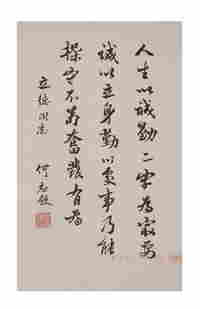 人生以誠勤二字為最要
誠以立身勤以處事乃能
操守不苟奮發有為
立德同志
何應欽